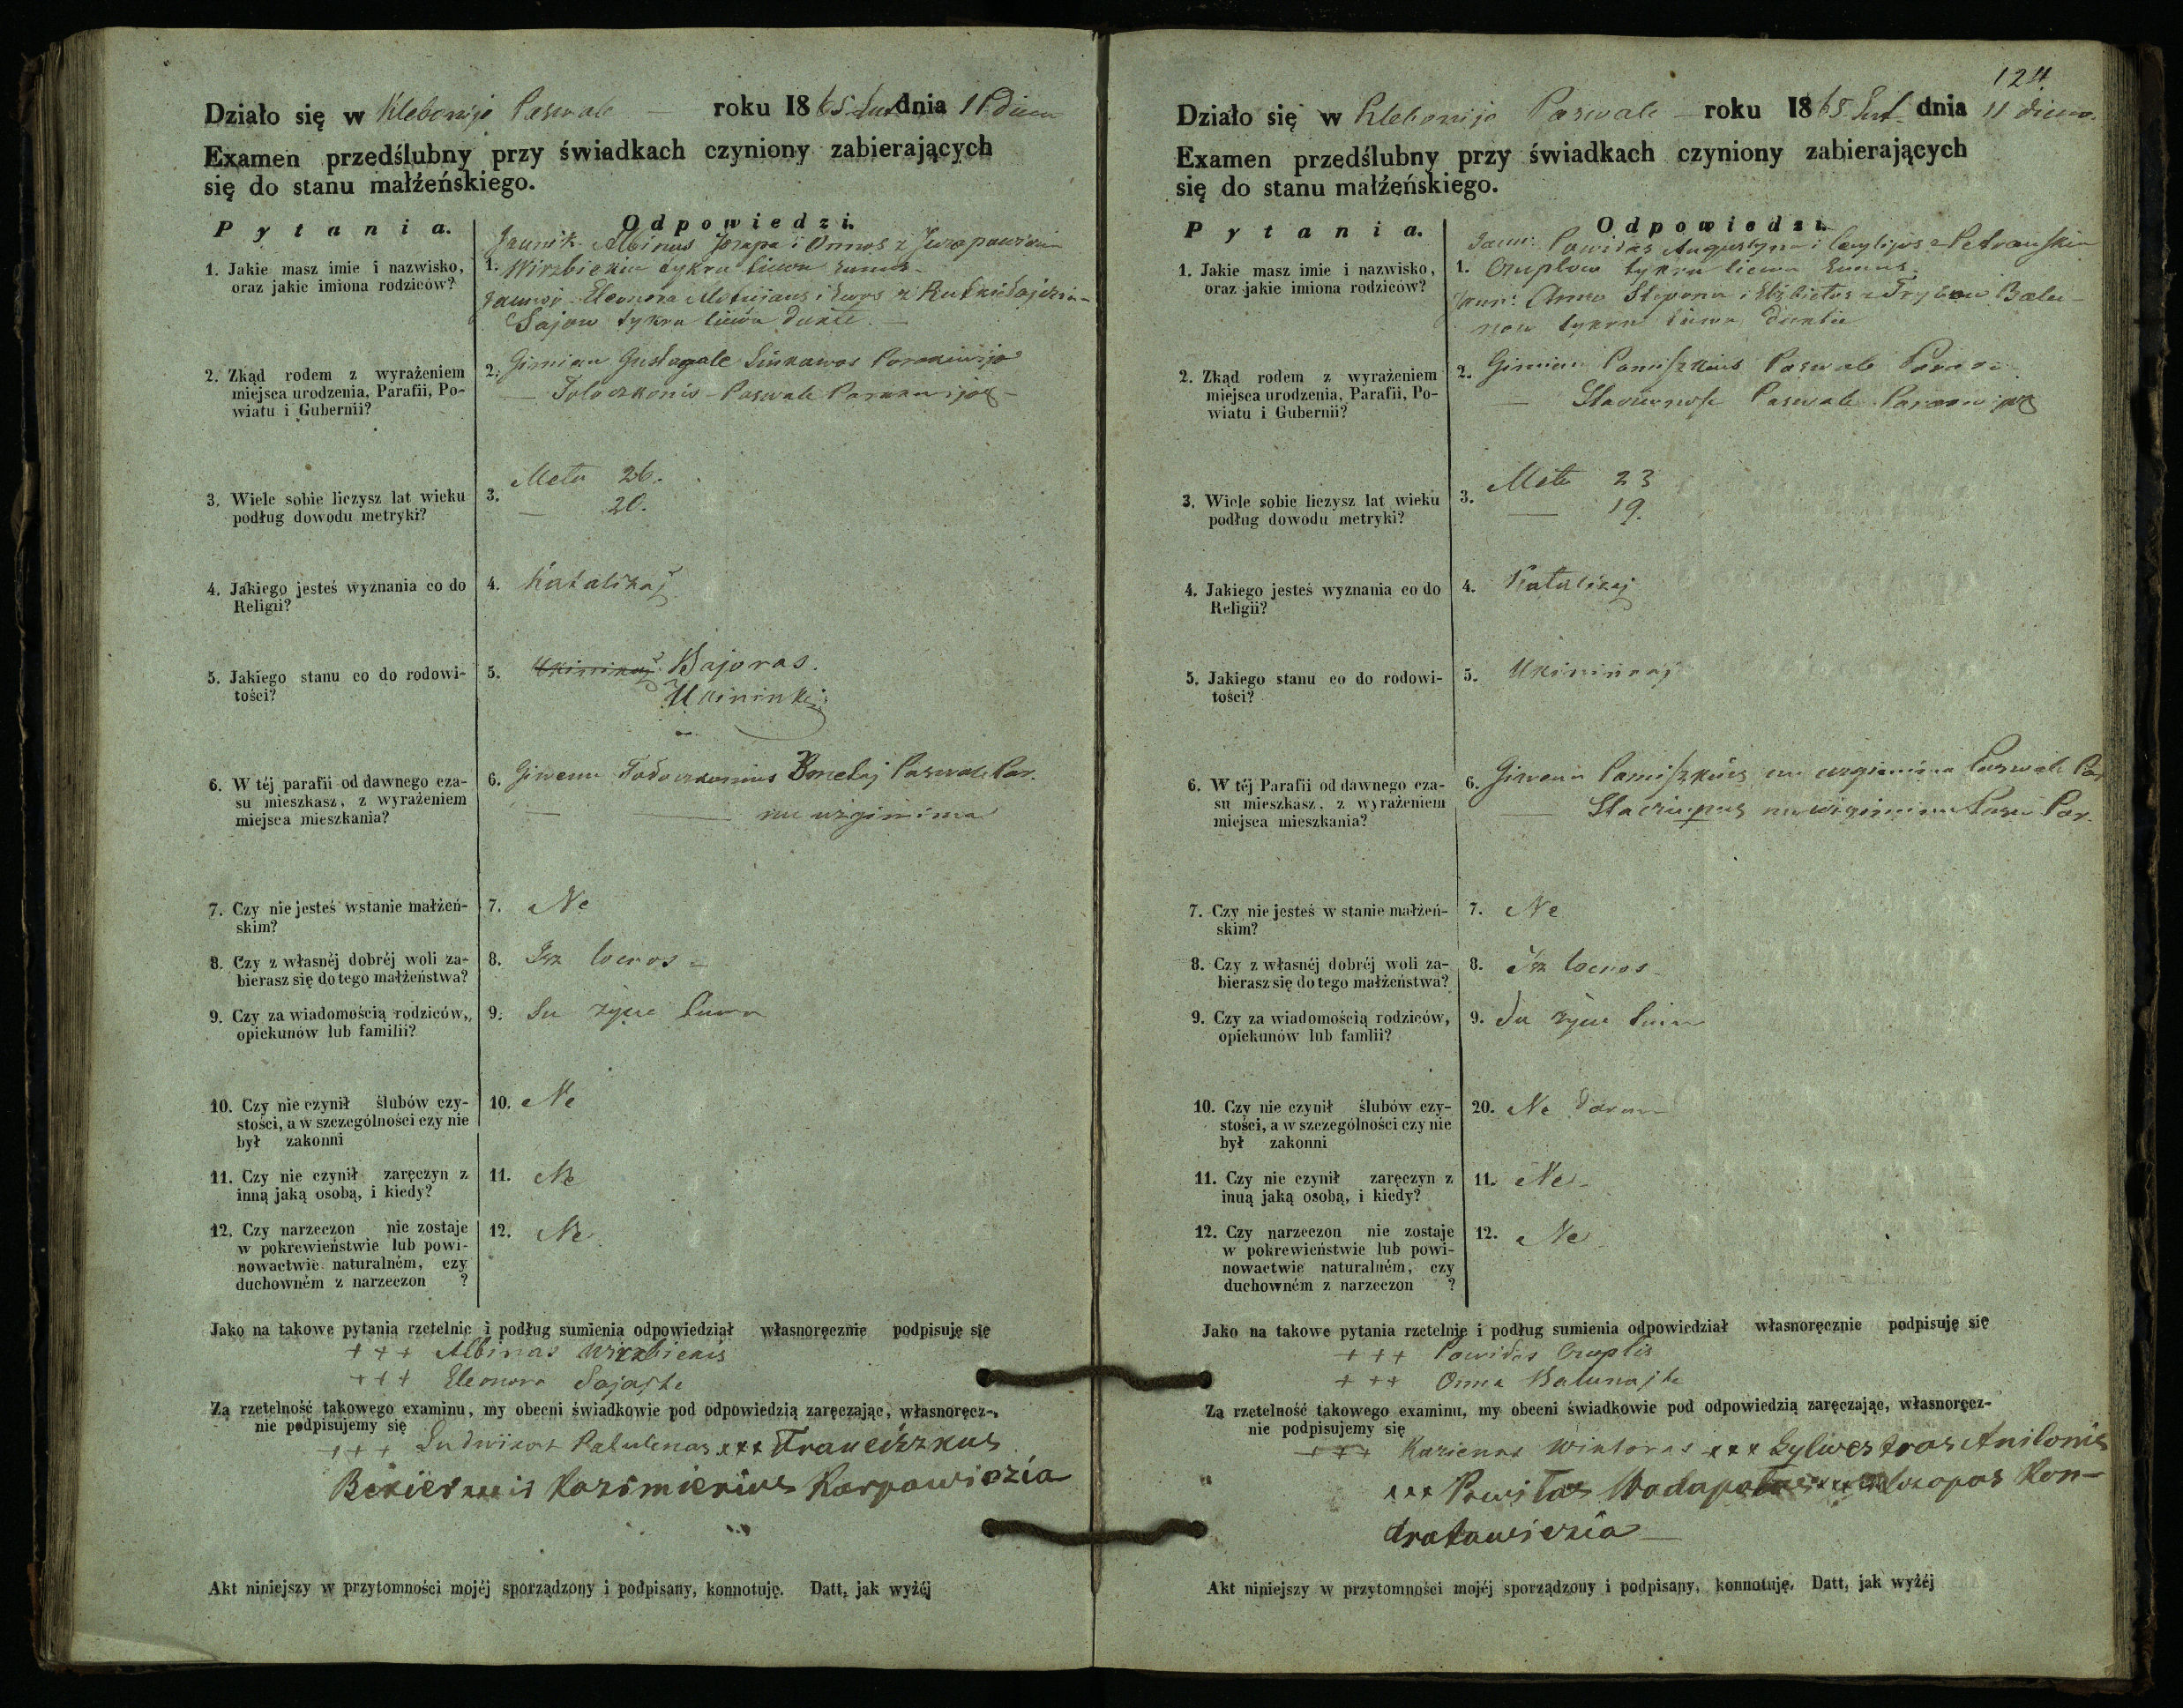 Działo się w Klebonijo Paswale — roku 1865 Lut dnia 11 diena
Examen przedślubny przy świadkach czyniony zabierających
się do stanu małżeńskiego.
Pytania. Odpowiedzi.
Jaunik. Albinas Jozapa i Onnos z Juzapawiciu
1. Jakie masz imie i nazwisko, oraz jakie imiona rodziców?
1. Wirzbickiu tykru tiewu sunus.
Jaunoji Eleonora Motiejaus i Ewos z
Sajow tykru tiewu dukte.
2. Zkąd rodem z wyrażeniem
miejsca urodzenia, Parafii, Po-
wiatu i Gubernii?
2. Gimiau Linkawos Parakwijo
— Toloczkonis – Paswale Parakwijos –
3. Wiele sobie liczysz lat wieku
podług dowodu metryki?
3. Metu 26.
— 20.
4. Jakiego jesteś wyznania co do
Religii?
4. Katalikaj
5. Jakiego stanu co do rodowi-
tości?
5. Ukininkaj Bajoras.
Ukininke
6. W téj parafii od dawnego cza-
su mieszkasz, z wyrażeniem
miejsca mieszkania?
6. Giwenu Toloczkonius Paswale Par.
— — nu uzgimima
7. Czy nie jesteś wstanie małżeń-
skim?
7. Ne
8. Czy z własnéj dobréj woli za-
bierasz się do tego małżeństwa?
8. Isz waros –
9. Czy za wiadomością rodziców,
opiekunów lub familii?
9. Su żyne tiewu
10. Czy nie czynił ślubów czy-
stości, a w szczególności czy nie
był zakonni
10. Ne
11. Czy nie czynił zaręczyn z
inną jaką osobą, i kiedy?
11. Ne
12. Czy narzeczon nie zostaje
w pokrewieństwie lub powi-
nowactwie naturalném, czy
duchowném z narzeczon ?
12. Ne
Jako na takowe pytania rzetelnie i podług sumienia odpowiedział własnoręcznie podpisuję się
+ + + Albinas Wirzbickis
+ + + Eleonora Sajajte
Za rzetelność takowego examinu, my obecni świadkowie pod odpowiedzią zaręczając, własnoręcz-
nie podpisujemy się
+ + + Ludwikas Palulenas xxx Franciszkus
Kazimierius Karpawiczia
Akt niniejszy w przytomności mojéj sporządzony i podpisany, konnotuję. Datt, jak wyżéj
124.
Działo się w Klebonijo Paswale – roku 1865 Lut dnia 11 diena.
Examen przedślubny przy świadkach czyniony zabierających
się do stanu małżeńskiego.
Pytania. Odpowiedzi.
Jaun: Powidas Augustyna i Cecylijos z Petrauskiu
1. Jakie masz imie i nazwisko,
oraz jakie imiona rodziców?
1. Czuplow tykru tiewu sunus.
Jaun: Anna Stepona i Elzbietos z Balu-
now tykru tiewu dukte
2. Zkąd rodem z wyrażeniem
miejsca urodzenia, Parafii, Po-
wiatu i Gubernii?
2. Gimiau Pamiszkius Paswale Parak:
— Paswale Parakwijos
3. Wiele sobie liczysz lat wieku
podług dowodu metryki?
3. Metu 23
— 19.
4. Jakiego jesteś wyznania co do
Religii?
4. Katalikaj
5. Jakiego stanu co do rodowi-
tości?
5. Ukininkaj
6. W téj Parafii od dawnego cza-
su mieszkasz, z wyrażeniem
miejsca mieszkania?
6. Giwenu Pamiszkius nu uzgimima Paswale Par
— nu uzgimima Pasw Par.
7. Czy nie jesteś w stanie małżeń-
skim?
7. Ne
8. Czy z własnéj dobréj woli za-
bierasz się do tego małżeństwa?
8. Isz waros –
9. Czy za wiadomością rodziców,
opiekunów lub famlii?
9. Su żyne tiewu
10. Czy nie czynił ślubów czy-
stości, a w szczególności czy nie
był zakonni
20. Ne
11. Czy nie czynił zaręczyn z
inuą jaką osobą, i kiedy?
11. Ne –
12. Czy narzeczon nie zostaje
w pokrewieństwie lub powi-
nowactwie naturalném, czy
duchowném z narzeczon ?
12. Ne
Jako na takowe pytania rzetelnie i podług sumienia odpowiedział własnoręcznie podpisuję się
+ + + Powidas Czuplis
+ + + Onna Balunajte
Za rzetelność takowego examinu, my obecni świadkowie pod odpowiedzią zaręczając, własnoręcz-
nie podpisujemy się
+ + + Kazienas Wiktoras xxx Sylwestras Anilonis
xxx Powilas Kon-
tratawiczia —
Akt niniejszy w przytomności mojéj sporządzony i podpisany, konnotuję. Datt, jak wyżéj